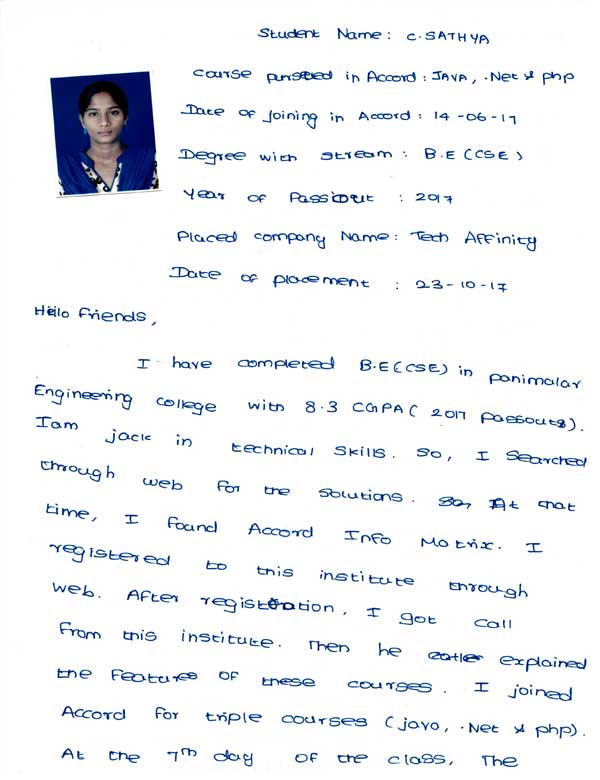 Student Name: C. SATHYA
Course pursued in Accord: JAVA, .Net & php
Date of joining in Accord: 14-06-17
Degree with stream: B.E (CSE)
Year of Passout : 2017
Placed company Name: Tech Affinity
Date of placement : 23-10-17
Hello friends,
I have completed B.E (CSE) in panimalar
Engineering college with 8.3 CGPA ( 2017 passouts).
I am jack in technical skills. So, I searched
through web for the solutions. So, At that
time, I found Accord Info Matrix. I
registered to this institute through
web. After registration, I got call
from this institute. Then he explained
the features of these courses. I joined
Accord for triple courses (java, .Net & php).
At the 7th day of the class, The